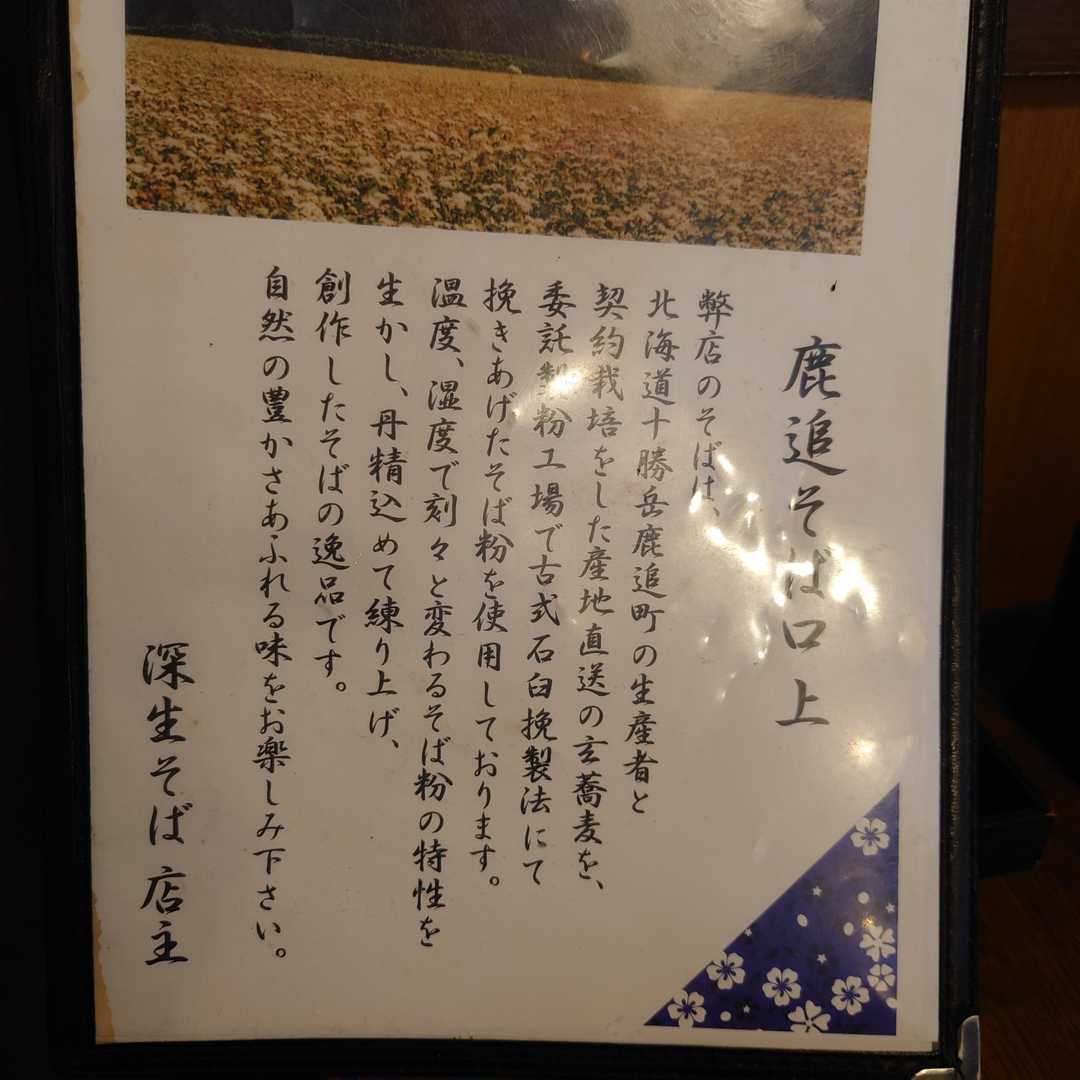 鹿追そば口上
弊店のそばは、
北海道十勝岳鹿追町の生産者と
契約栽培をした産地直送の玄蕎麦を、
委託製粉工場で古式石臼挽製法にて
挽きあげたそば粉を使用しております。
温度、湿度で刻々と変わるそば粉の特性を
生かし、丹精込めて練り上げ、
創作したそばの逸品です。
自然の豊かさあふれる味をお楽しみ下さい。
深生そば 店主